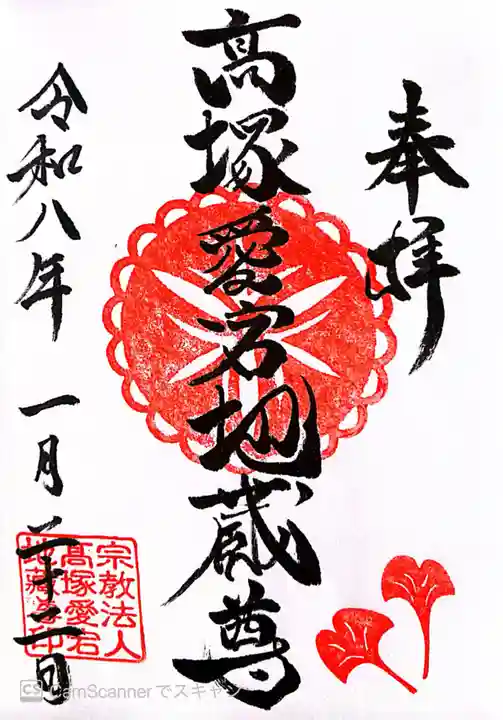 奉拝
高塚愛宕地蔵尊
令和八年 一月二十二日
宗教法人
高塚愛宕
地蔵尊印
CS CamScannerでスキャン